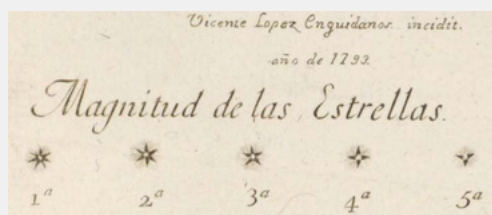 Vicente Lopez Enguidanos incidit.
año de 1793.
Magnitud de las Estrellas.
1ª 2ª 3ª 4ª 5ª